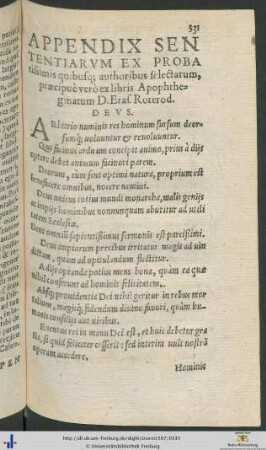 531
APPENDIX SEN
TENTIARVM EX PROBA
tissimis quibusq; authoribus selectarum,
præcipuè verò ex libris Apophthe-
gmatum D. Eras. Roterod.
DEVS.
ARbitrio numinis res hominum sursum deor-
sumq; voluuntur & reuoluuntur.
Qui facinus arduum concipit animo, prius à dijs
optare debet animum facinori parem.
Deorum, cùm sint optimi natura, proprium est
benefacere omnibus, nocere nemini.
Deus unicus totius mundi monarcha, malis genijs
ac impijs hominibus nonnunquam abutitur ad utili
tatem Ecclesiæ.
Deus omnis sapientissimus sermonis est parcissimi.
Deus impiorum precibus irritatur magis ad uin
dictam, quàm ad opitulandum flectitur.
A dijs optanda potius mens bona, quàm ea quæ
nihil conferunt ad hominis felicitatem.
Absq; prouidentia Dei nihil geritur in rebus mor
talium, magisq; fidendum diuino fauori, quàm hu-
manis consilijs aut uiribus.
Euentus rei in manu Dei est, et huic debetur gra
tia, si quid feliciter cesserit: sed interim uult nostrã
operam accedere.
Hominis
PEN
http://dl.ub.uni-freiburg.de/diglit/
© Universitätsbibliothek Freiburg
Baden-Württemberg